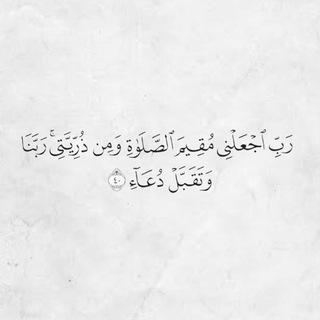 رَبِّ ٱجْعَلْنِى مُقِيمَ ٱلصَّلَوٰةِ وَمِن ذُرِّيَّتِى ۚ رَبَّنَا
وَتَقَبَّلْ دُعَآءِ ۝٤٠